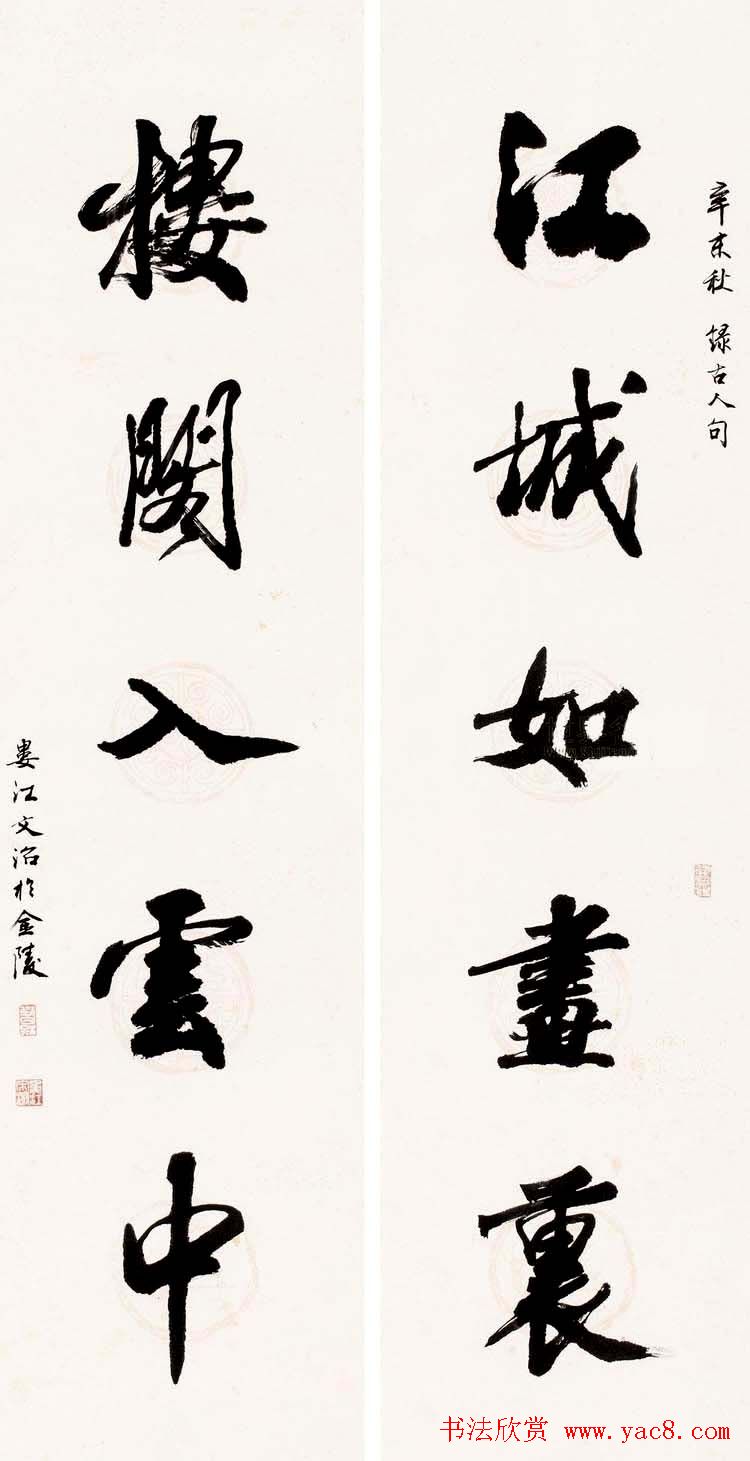 辛未秋 录古人句
江城如畫裏
樓閣入雲中
婁江文治於金陵
书法欣赏 www.yac8.com